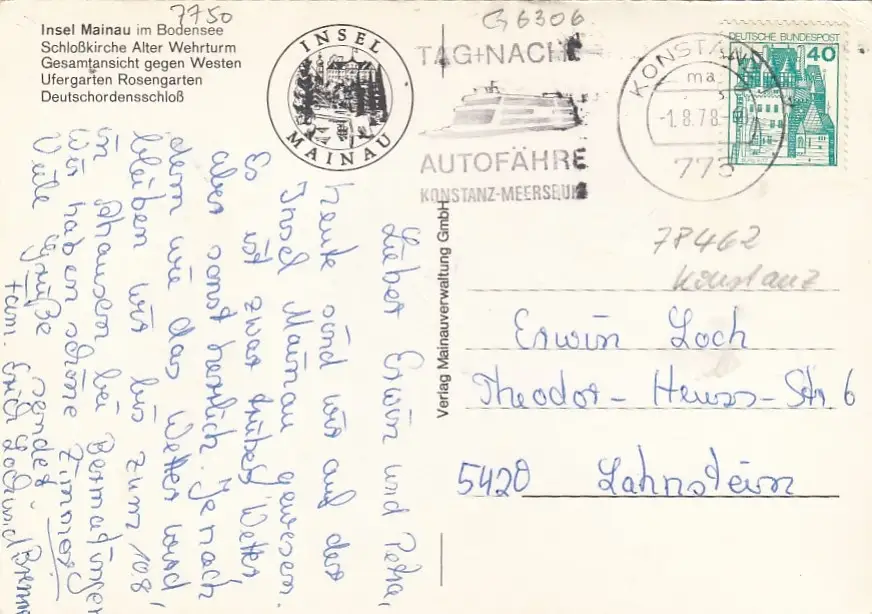 7750
G 6306
Insel Mainau im Bodensee
Schloßkirche Alter Wehrturm
Gesamtansicht gegen Westen
Ufergarten Rosengarten
Deutschordensschloß
INSEL
MAINAU
TAG+NACHT
AUTOFÄHRE
KONSTANZ-MEERSBURG
KONSTANZ
ma
-1.8.78-
775
DEUTSCHE BUNDESPOST
40
Lieber Erwin und Petra,
heute sind wir auf der
Insel Mainau gewesen.
Es ist zwar trübes Wetter,
aber sonst herrlich. Je nach
dem wie das Wetter wird,
bleiben wir bis zum 10.8,
in Ahausen bei Bermatingen
Wir haben schöne Zimmer.
Viele Grüße sendet
Fam. Erich Loch und
Verlag Mainauverwaltung GmbH
78462
Konstanz
Erwin Loch
Theodor-Heuss-Str. 6
5420 Lahnstein